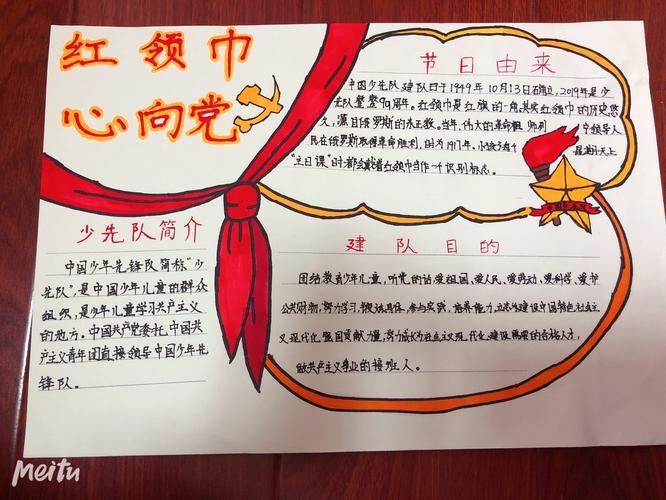 红领巾
心向党
节日由来
中国少年队建队日于1949年10月13日确立,2019年是少
先队整整70周年。红领巾是红旗的一角,其实红领巾的历史悠
久,源自俄罗斯的东正教。当年,伟大的革命 领导人
民在俄罗斯取得革命胜利,时为1917年,小孩子
"主日课"时都会戴着红领巾当作一个识别标志。
少先队简介
中国少年先锋队简称"少
先队",是中国少年儿童的群众
组织,是少年儿童学习共产主义
的地方。中国共产党委托中国共
产主义青年团直接领导中国少年先
锋队。
建队目的
团结教育少年儿童,听党的话,爱祖国、爱人民、爱劳动、爱科学、爱护
公共财物,努力学习,锻炼身体,参与实践,培养能力,立志为建设中国特色社会主
义现代化强国贡献力量,努力成长为社会主义现代化建设需要的合格人才,
做共产主义事业的接班人。
meitu